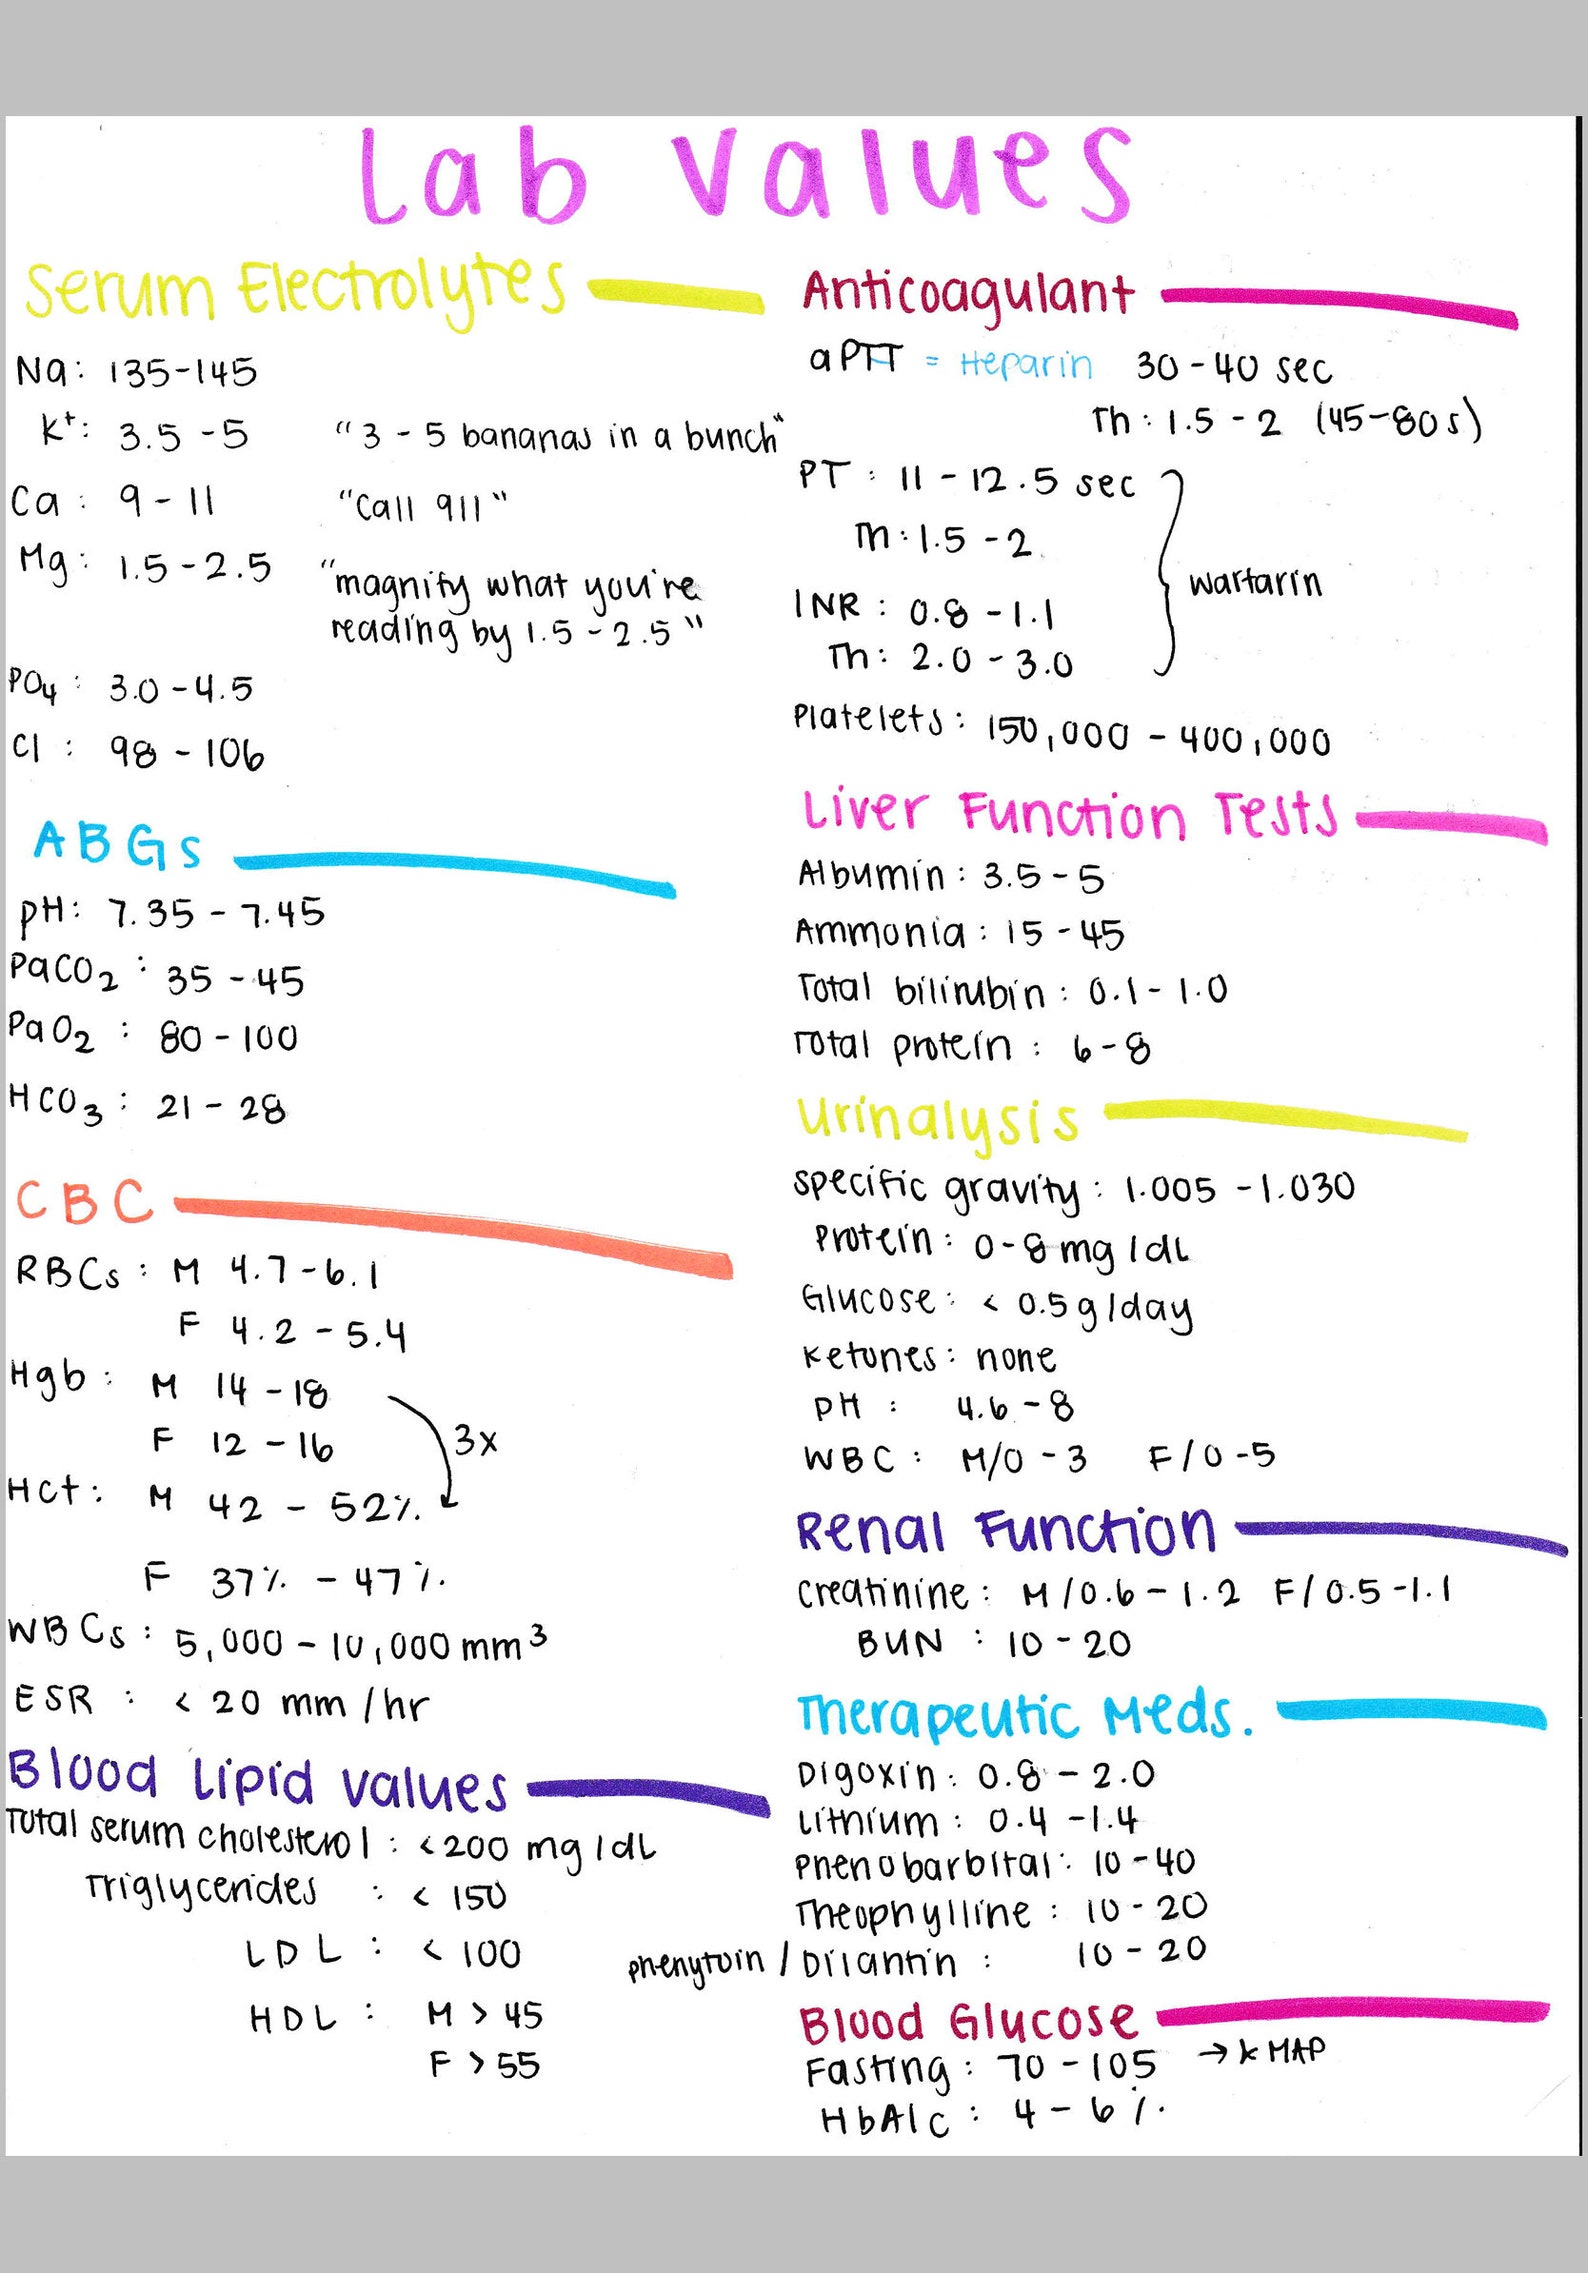 Lab Values
Serum Electrolytes
Na: 135-145
K+: 3.5-5 "3-5 bananas in a bunch"
Ca: 9-11 "Call 911"
Mg: 1.5-2.5 "magnify what you're
reading by 1.5-2.5"
PO4: 3.0-4.5
Cl: 98-106
ABGs
pH: 7.35-7.45
PaCO2: 35-45
PaO2: 80-100
HCO3: 21-28
CBC
RBCs: M 4.7-6.1
F 4.2-5.4
Hgb: M 14-18
F 12-16
3x
Hct: M 42-52%
F 37%-47%
WBCs: 5,000-10,000 mm3
ESR: < 20 mm/hr
Blood Lipid Values
Total serum cholesterol: <200 mg/dL
Triglycerides: < 150
LDL: < 100
HDL: M > 45
F > 55
Anticoagulant
aPTT = Heparin 30-40 sec
Th: 1.5-2 (45-80s)
PT: 11-12.5 sec
Th: 1.5-2
INR: 0.8-1.1
Th: 2.0-3.0
warfarin
Platelets: 150,000-400,000
Liver Function Tests
Albumin: 3.5-5
Ammonia: 15-45
Total bilirubin: 0.1-1.0
Total protein: 6-8
Urinalysis
specific gravity: 1.005-1.030
Protein: 0-8 mg/dL
Glucose: < 0.5g/day
Ketones: none
pH: 4.6-8
WBC: M/0-3 F/0-5
Renal Function
Creatinine: M/0.6-1.2 F/0.5-1.1
BUN: 10-20
Therapeutic Meds.
Digoxin: 0.8-2.0
Lithium: 0.4-1.4
Phenobarbital: 10-40
Theophylline: 10-20
phenytoin/Dilantin: 10-20
Blood Glucose
Fasting: 70-105 → k MAP
HbA1c: 4-6%